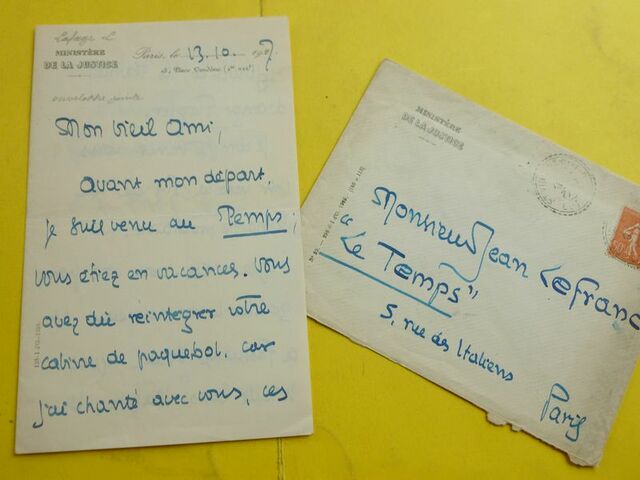 Lafarge L
MINISTÈRE
DE LA JUSTICE
Paris, le 13.10.1927
13, Place Vendôme (1er arrt)
enveloppe jointe
Mon vieil Ami,
Avant mon départ,
je suis venu au Temps;
vous étiez en vacances. Vous
avez dû réintégrer votre
cabine de paquebot. car
j'ai chanté avec vous, ces
MINISTÈRE
DE LA JUSTICE
Monsieur Jean Lefranc
"Le Temps"
5, rue des Italiens
Paris